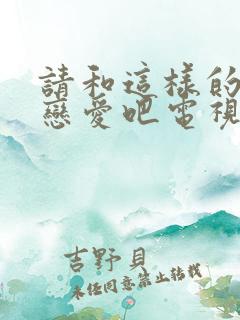 請和這樣的
戀愛吧電視
吉野貝
未經同意禁止轉載